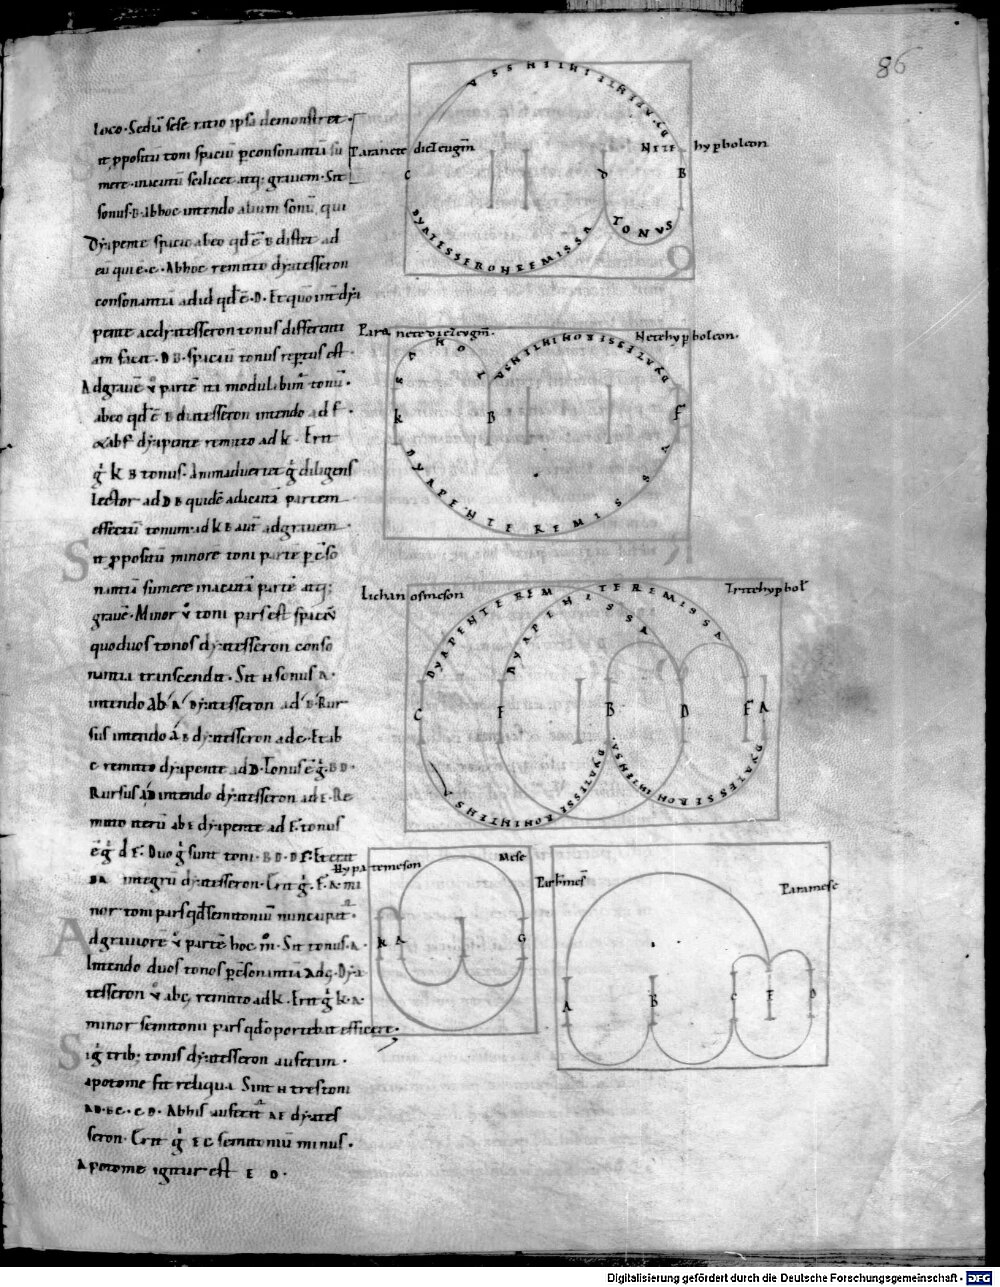 86
loco. Sed ut sese ratio ipsa demonstret.
Sit ppositū toni spaciū p consonantiā su
mere in acutū scilicet atq; grauem. Sit
sonus .B. Ab hoc intendo alium sonū qui
Dyapente spacio ab eo qd ē B distet ad
eū qui ē .C. Ab hoc remitto dyatesseron
consonantiā ad id qd ē .D. Et quoniam dya
pente ac dyatesseron tonus differenti
am facit. D B. spaciū tonus reptus est.
Ad grauē ū partē ita modulabim' tonū.
ab eo qd ē B dyatesseron intendo ad F.
& ab F dyapente remitto ad K. Erit
g K B tonus. Animaduertet g diligens
lector ad D B quidē ad acutā partem
effectū tonum. ad K B aut ad grauem.
Sit ppositū minorē toni partē p cōso
nantiā sumere in acutā partē atq;
grauē. Minor ū toni pars est spaciū
quo duos tonos dyatesseron conso
nantia transcendit. Sit H sonus A.
intendo ab A dyatesseron ad B. Rur
sus intendo a B dyatesseron ad C. Et ab
C. remitto dyapente ad D. Tonus ē g. B D.
Rursus a D intendo dyatesseron ad E. Re
mitto iterū ab E dyapente ad F. tonus
ē g d F. Duo g sunt toni. B D. D F. Et erit
BA integrū dyatesseron. Erit g. F. A. mi
nor toni pars qd semitoniū nuncupat.
Ad grauiorē ū partē hoc m. Sit tonus. A.
Intendo duos tonos p cōsonantiā AdG. Dya
tesseron ū ab G, remitto ad K. Erit g K A.
minor semitonii pars qd oportebat efficere.
Si g trib; tonis dyatesseron auferim.
apotome fit reliqua. Sint H tres toni
AB. BC. C D. Ab his auferat AE dyates
seron. Erit g E C semitoniū minus.
Apotome igitur est E D.
Paranete diezeugm
Nete hypboleon
DYAPENTE
C D B
DYATESSERON REMISSA
TONVS
Paranete diezeugm.
Nete hypboleon.
TONVS
K B F
DYAPENTE REMISSA
Lichanosmeson
Trite hypbol
DYAPENTE REMISSA
DYAPENTE REMISSA
C E B D F A
DYATESSERON INTENSA
DYATESSERON INTENSA
DYATESSERON INTENSA
Hypatemeson
Mese
K A G
Parhmes
Paramese
A B C E D
Digitalisierung gefördert durch die Deutsche Forschungsgemeinschaft - DFG